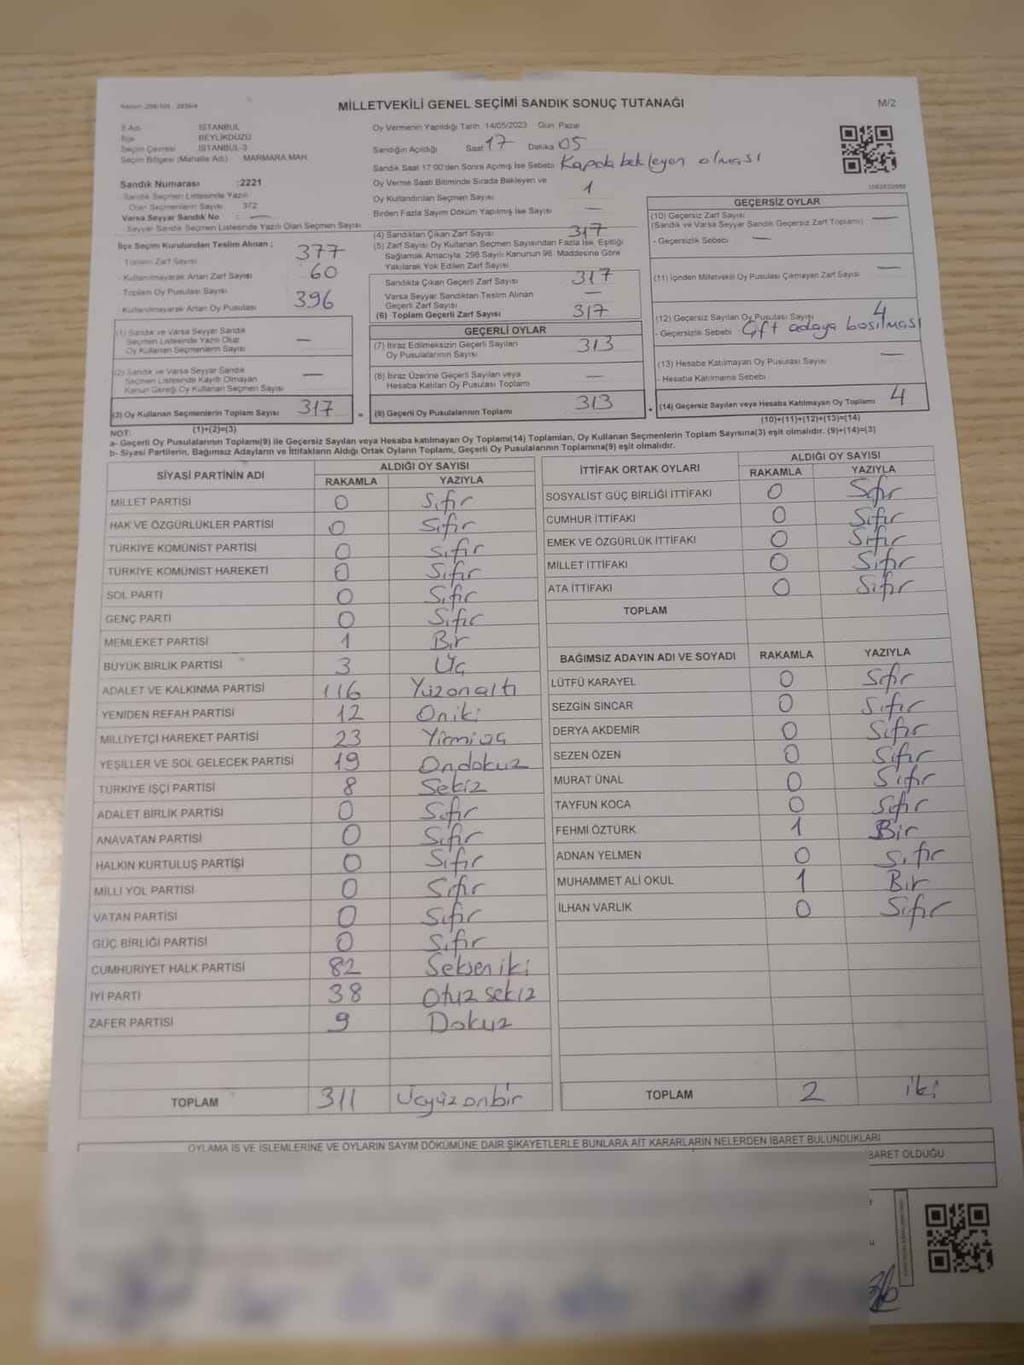 MİLLETVEKİLİ GENEL SEÇİMİ SANDIK SONUÇ TUTANAĞI
M/2
İli Adı İSTANBUL
İlçe BEYLİKDÜZÜ
Seçim Çevresi İSTANBUL-3
Seçim Bölgesi (Mahalle Adı) MARMARA MAH.
Sandık Numarası :2221
Sandık Seçmen Listesinde Yazılı
Olan Seçmenlerin Sayısı 372
Varsa Seyyar Sandık No : —
Seyyar Sandık Seçmen Listesinde Yazılı Olan Seçmen Sayısı
Oy Vermenin Yapıldığı Tarih :14/05/2023 Gün: Pazar
Sandığın Açıldığı Saat 17 Dakika 05
Sandık Saat 17:00'den Sonra Açılmış İse Sebebi Kapıda bekleyen olması
Oy Verme Saati Bitiminde Sırada Bekleyen ve
Oy Kullandırılan Seçmen Sayısı 1
Birden Fazla Sayım Döküm Yapılmış İse Sayısı —
İlçe Seçim Kurulundan Teslim Alınan ;
Toplam Zarf Sayısı 377
- Kullanılmayarak Artan Zarf Sayısı 60
Toplam Oy Pusulası Sayısı 396
- Kullanılmayarak Artan Oy Pusulası
(1) Sandık ve Varsa Seyyar Sandık
Seçmen Listesinde Yazılı Olup
Oy Kullanan Seçmenlerin Sayısı —
(2) Sandık ve Varsa Seyyar Sandık
Seçmen Listesinde Kayıtlı Olmayan
Kanun Gereği Oy Kullanan Seçmen Sayısı —
(3) Oy Kullanan Seçmenlerin Toplam Sayısı 317
(1)+(2)=(3)
(4) Sandıktan Çıkan Zarf Sayısı 317
(5) Zarf Sayısı Oy Kullanan Seçmen Sayısından Fazla İse, Eşitliği
Sağlamak Amacıyla, 298 Sayılı Kanunun 98. Maddesine Göre
Yakılarak Yok Edilen Zarf Sayısı
Sandıkta Çıkan Geçerli Zarf Sayısı 317
Varsa Seyyar Sandıktan Teslim Alınan
Geçerli Zarf Sayısı —
(6) Toplam Geçerli Zarf Sayısı 317
GEÇERLİ OYLAR
(7) İtiraz Edilmeksizin Geçerli Sayılan
Oy Pusulalarının Sayısı 313
(8) İtiraz Üzerine Geçerli Sayılan veya
Hesaba Katılan Oy Pusulası Toplamı —
(9) Geçerli Oy Pusulalarının Toplamı 313
GEÇERSİZ OYLAR
(10) Geçersiz Zarf Sayısı —
(Sandık ve Varsa Seyyar Sandık Geçersiz Zarf Toplamı)
- Geçersizlik Sebebi —
(11) İçinden Milletvekili Oy Pusulası Çıkmayan Zarf Sayısı —
(12) Geçersiz Sayılan Oy Pusulası Sayısı 4
- Geçersizlik Sebebi Çift adaya basılması
(13) Hesaba Katılmayan Oy Pusulası Sayısı —
- Hesaba Katılmama Sebebi
(14) Geçersiz Sayılan veya Hesaba Katılmayan Oy Toplamı 4
(10)+(11)+(12)+(13)=(14)
NOT:
a- Geçerli Oy Pusulalarının Toplamı(9) ile Geçersiz Sayılan veya Hesaba katılmayan Oy Toplamı(14) Toplamları, Oy Kullanan Seçmenlerin Toplam Sayısına(3) eşit olmalıdır. (9)+(14)=(3)
b- Siyasi Partilerin, Bağımsız Adayların ve İttifakların Aldığı Ortak Oyların Toplamı, Geçerli Oy Pusulalarının Toplamına(9) eşit olmalıdır.
SİYASİ PARTİNİN ADI ALDIĞI OY SAYISI
RAKAMLA YAZIYLA
MİLLET PARTİSİ 0 Sıfır
HAK VE ÖZGÜRLÜKLER PARTİSİ 0 Sıfır
TÜRKİYE KOMÜNİST PARTİSİ 0 Sıfır
TÜRKİYE KOMÜNİST HAREKETİ 0 Sıfır
SOL PARTİ 0 Sıfır
GENÇ PARTİ 0 Sıfır
MEMLEKET PARTİSİ 1 Bir
BÜYÜK BİRLİK PARTİSİ 3 Üç
ADALET VE KALKINMA PARTİSİ 116 Yüzonaltı
YENİDEN REFAH PARTİSİ 12 Oniki
MİLLİYETÇİ HAREKET PARTİSİ 23 Yirmiüç
YEŞİLLER VE SOL GELECEK PARTİSİ 19 Ondokuz
TÜRKİYE İŞÇİ PARTİSİ 8 Sekiz
ADALET BİRLİK PARTİSİ 0 Sıfır
ANAVATAN PARTİSİ 0 Sıfır
HALKIN KURTULUŞ PARTİSİ 0 Sıfır
MİLLİ YOL PARTİSİ 0 Sıfır
VATAN PARTİSİ 0 Sıfır
GÜÇ BİRLİĞİ PARTİSİ 0 Sıfır
CUMHURİYET HALK PARTİSİ 82 Seksen iki
İYİ PARTİ 38 Otuz sekiz
ZAFER PARTİSİ 9 Dokuz
TOPLAM 311 Üçyüz onbir
İTTİFAK ORTAK OYLARI ALDIĞI OY SAYISI
RAKAMLA YAZIYLA
SOSYALİST GÜÇ BİRLİĞİ İTTİFAKI 0 Sıfır
CUMHUR İTTİFAKI 0 Sıfır
EMEK VE ÖZGÜRLÜK İTTİFAKI 0 Sıfır
MİLLET İTTİFAKI 0 Sıfır
ATA İTTİFAKI 0 Sıfır
TOPLAM
BAĞIMSIZ ADAYIN ADI VE SOYADI RAKAMLA YAZIYLA
LÜTFÜ KARAYEL 0 Sıfır
SEZGİN SİNCAR 0 Sıfır
DERYA AKDEMİR 0 Sıfır
SEZEN ÖZEN 0 Sıfır
MURAT ÜNAL 0 Sıfır
TAYFUN KOCA 0 Sıfır
FEHMİ ÖZTÜRK 1 Bir
ADNAN YELMEN 0 Sıfır
MUHAMMET ALİ OKUL 1 Bir
İLHAN VARLIK 0 Sıfır
TOPLAM 2 iki
OYLAMA İŞ VE İŞLEMLERİNE VE OYLARIN SAYIM DÖKÜMÜNE DAİR ŞİKAYETLERLE BUNLARA AİT KARARLARIN NELERDEN İBARET BULUNDUKLARI
BARET OLDUĞU